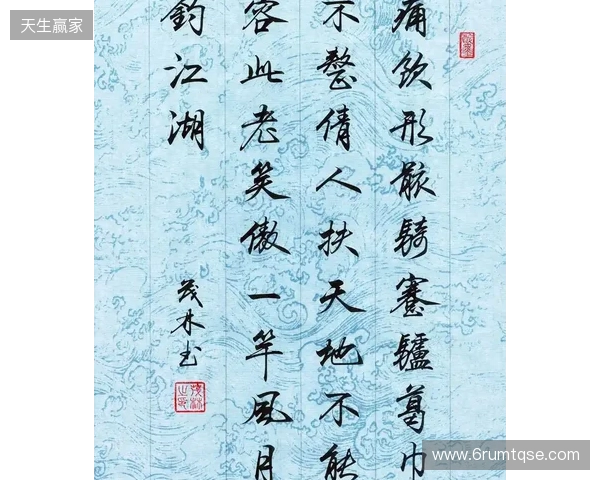 天生赢家
痛飲形骸騎蹇驢葛巾
不整倩人扶天地不能
容此老笑傲一竿風月
釣江湖
茂林书
www.6rumtqse.com